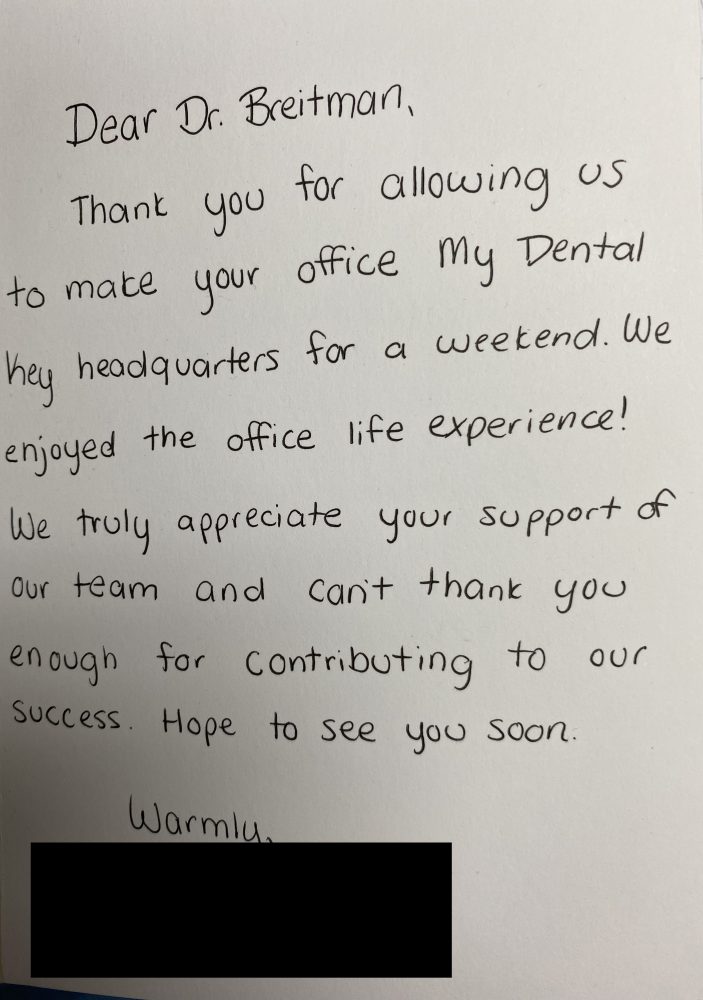 Dear Dr. Breitman,
Thank you for allowing us
to make your office My Dental
key headquarters for a weekend. We
enjoyed the office life experience!
We truly appreciate your support of
our team and can't thank you
enough for contributing to our
success. Hope to see you soon.
Warmly,